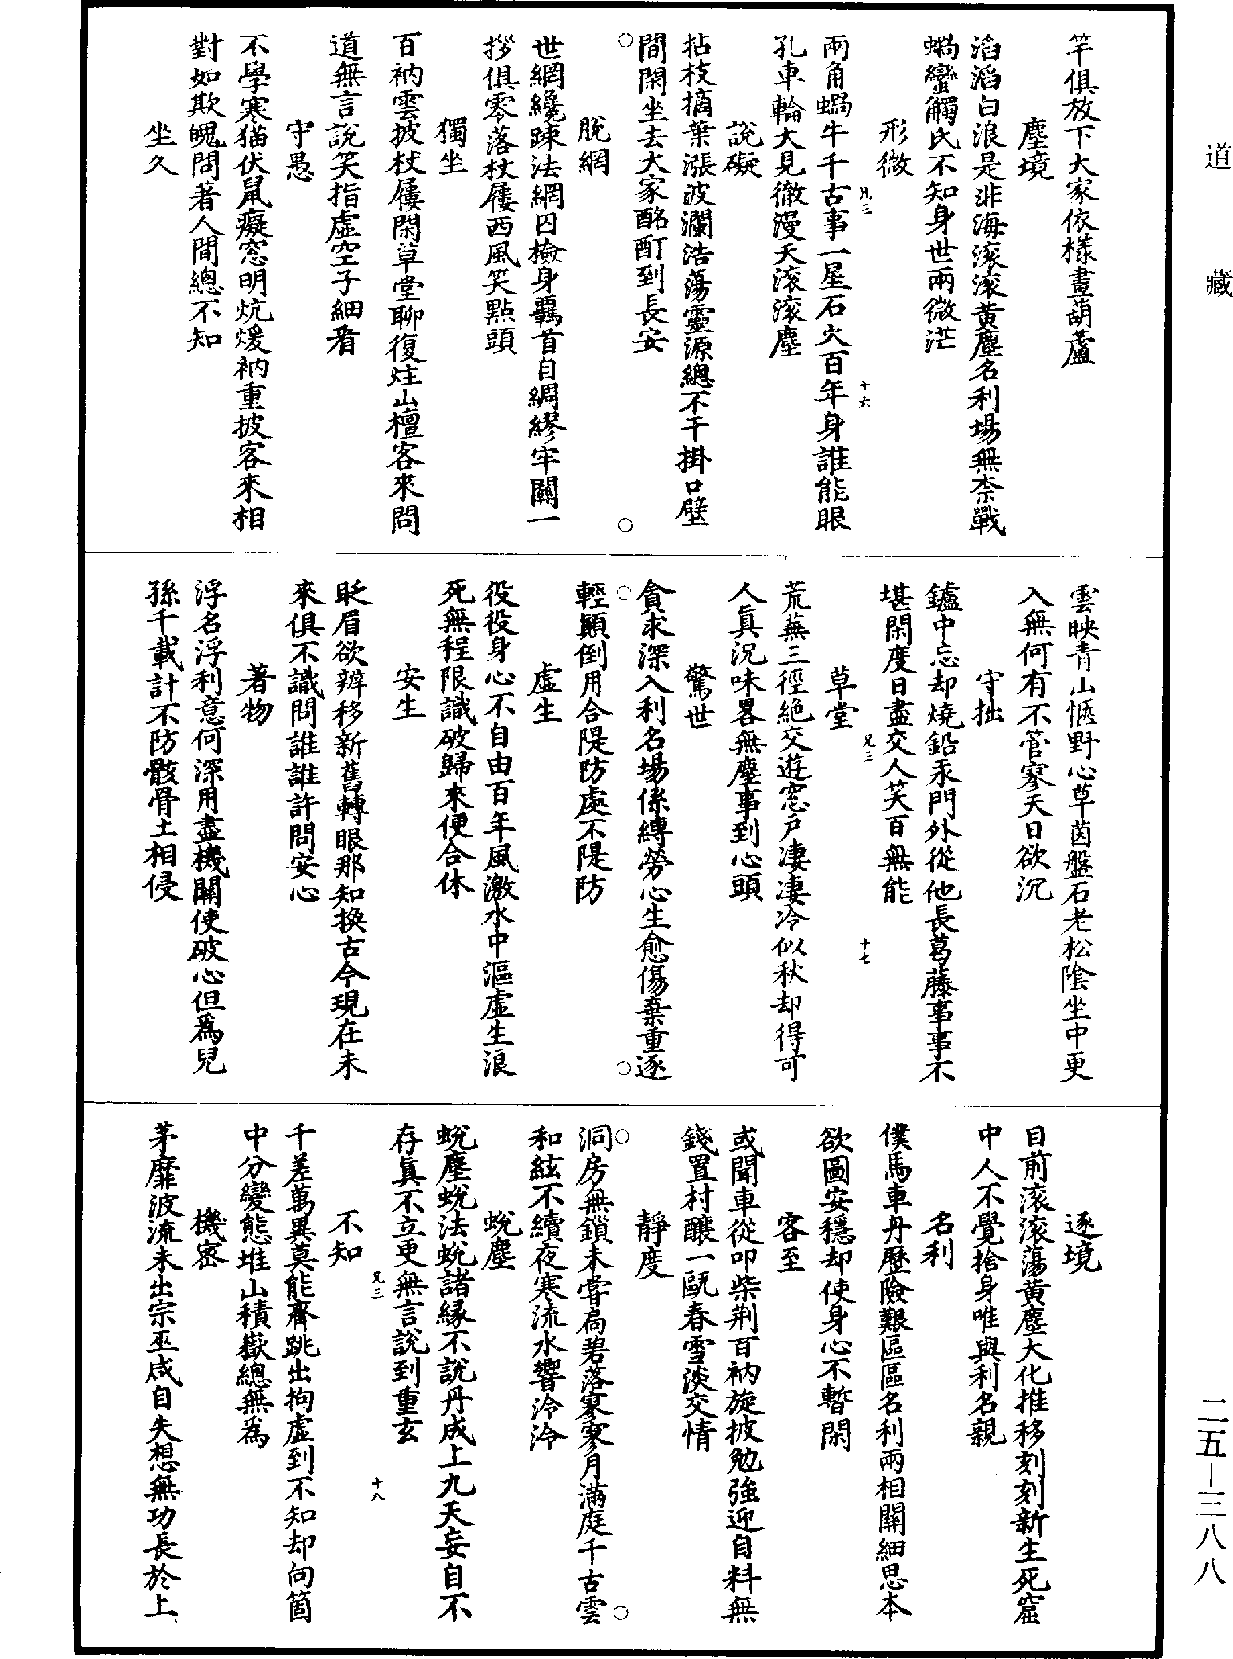 道藏
竿俱放下大家依樣畫葫蘆
塵境
滔滔白浪是非海滾滾黃塵名利場無柰戰
蝸蠻觸氏不知身世兩微茫
形微
兩角蝸牛千古事一星石火百年身誰能眼
孔車輪大見徹漫天滾滾塵
說礙
拈枝摘葉漲波瀾浩蕩靈源總不干掛口壁
間閑坐去大家酩酊到長安
脫網
世網纔踈法網囚檢身羈首自綢繆牢關一
拶俱零落杖屨西風笑點頭
獨坐
百衲雲披杖屨閑草堂聊復炷山檀客來問
道無言說笑指虛空子細看
守愚
不學寒猫伏鼠癡窓明炕煖衲重披客來相
對如欺魄問著人間總不知
坐久
十六
雲映青山愜野心草茵盤石老松陰坐中更
入無何有不管寥天日欲沉
守拙
鑪中忘却燒鉛汞門外從他長葛藤事事不
堪閑度日盡交人笑百無能
草堂
荒蕪三徑絕交遊窓戶凄凄冷似秋却得可
人真況味畧無塵事到心頭
驚世
貪求深入利名場係縛勞心生愈傷棄重逐
輕顛倒用合隄防處不隄防
虛生
役役身心不自由百年風激水中漚虛生浪
死無程限識破歸來便合休
安生
眨眉欲辨移新舊轉眼那知換古今現在未
來俱不識問誰誰許問安心
著物
浮名浮利意何深用盡機關使破心但為兒
孫千載計不防骸骨土相侵
十七
逐境
目前滾滾蕩黃塵大化推移刻刻新生死窟
中人不覺捨身唯與利名親
名利
僕馬車舟歷險艱區區名利兩相關細思本
欲圖安穩却使身心不暫閑
客至
或聞車從叩柴荆百衲旋披勉強迎自料無
錢置村釀一甌春雪淡交情
靜度
洞房無鎖未甞扃碧落寥寥月滿庭千古雲
和絃不續夜寒流水響泠泠
蛻塵
蛻塵蛻法蛻諸緣不說丹成上九天妄自不
存真不立更無言說到重玄
不知
千差萬異莫能齊跳出拘虛到不知却向箇
中分變態堆山積嶽總無為
機密
茅靡波流未出宗巫咸自失想無功長於上
十八
二五—三八八